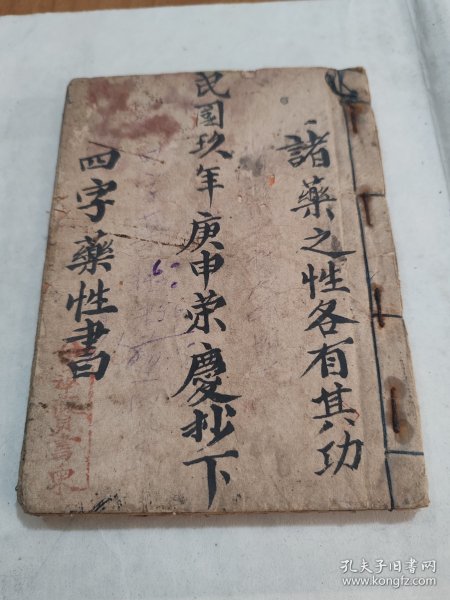 諸藥之性各有其功
民國玖年庚申榮慶抄下
四字藥性書
孔夫子旧书网
www.kongfz.com